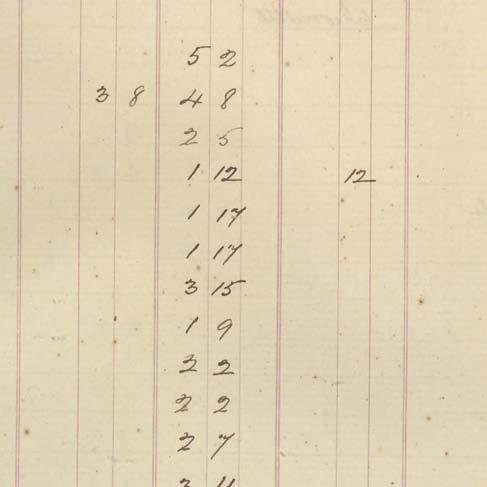 5 2
3 8 4 8
2 5
1 12 12
1 17
1 17
3 15
1 9
2 2
2 2
2 7